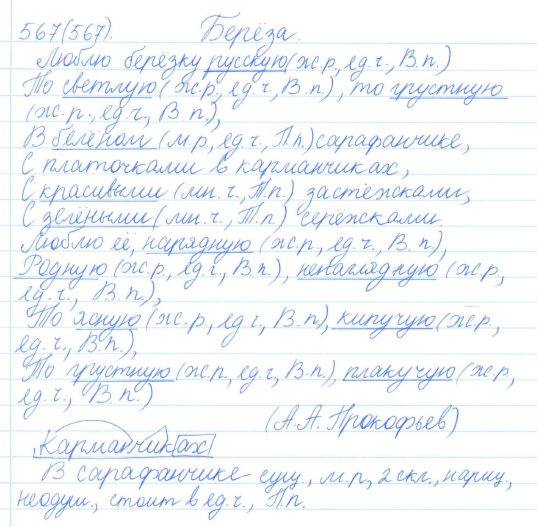 567(567). Берёза.
Люблю берёзку русскую (ж.р., ед.ч., В.п.)
То светлую (ж.р., ед.ч., В.п.), то грустную
(ж.р., ед.ч., В.п.),
В белёном (м.р., ед.ч., П.п.) сарафанчике,
С платочками в карманчиках,
С красивыми (мн.ч., Т.п.) застёжками,
С зелёными (мн.ч., Т.п.) серёжками.
Люблю её, нарядную (ж.р., ед.ч., В.п.),
Родную (ж.р., ед.ч., В.п.), ненаглядную (ж.р,
ед.ч., В.п.),
То ясную (ж.р., ед.ч., В.п.), кипучую (ж.р,
ед.ч., В.п.),
То грустную (ж.р., ед.ч., В.п.), плакучую (ж.р,
ед.ч., В.п.)
(А.А. Прокофьев)
Карманчиках
В сарафанчике сущ., м.р., 2 скл., нариц.,
неодуш., стоит в ед.ч., П.п.